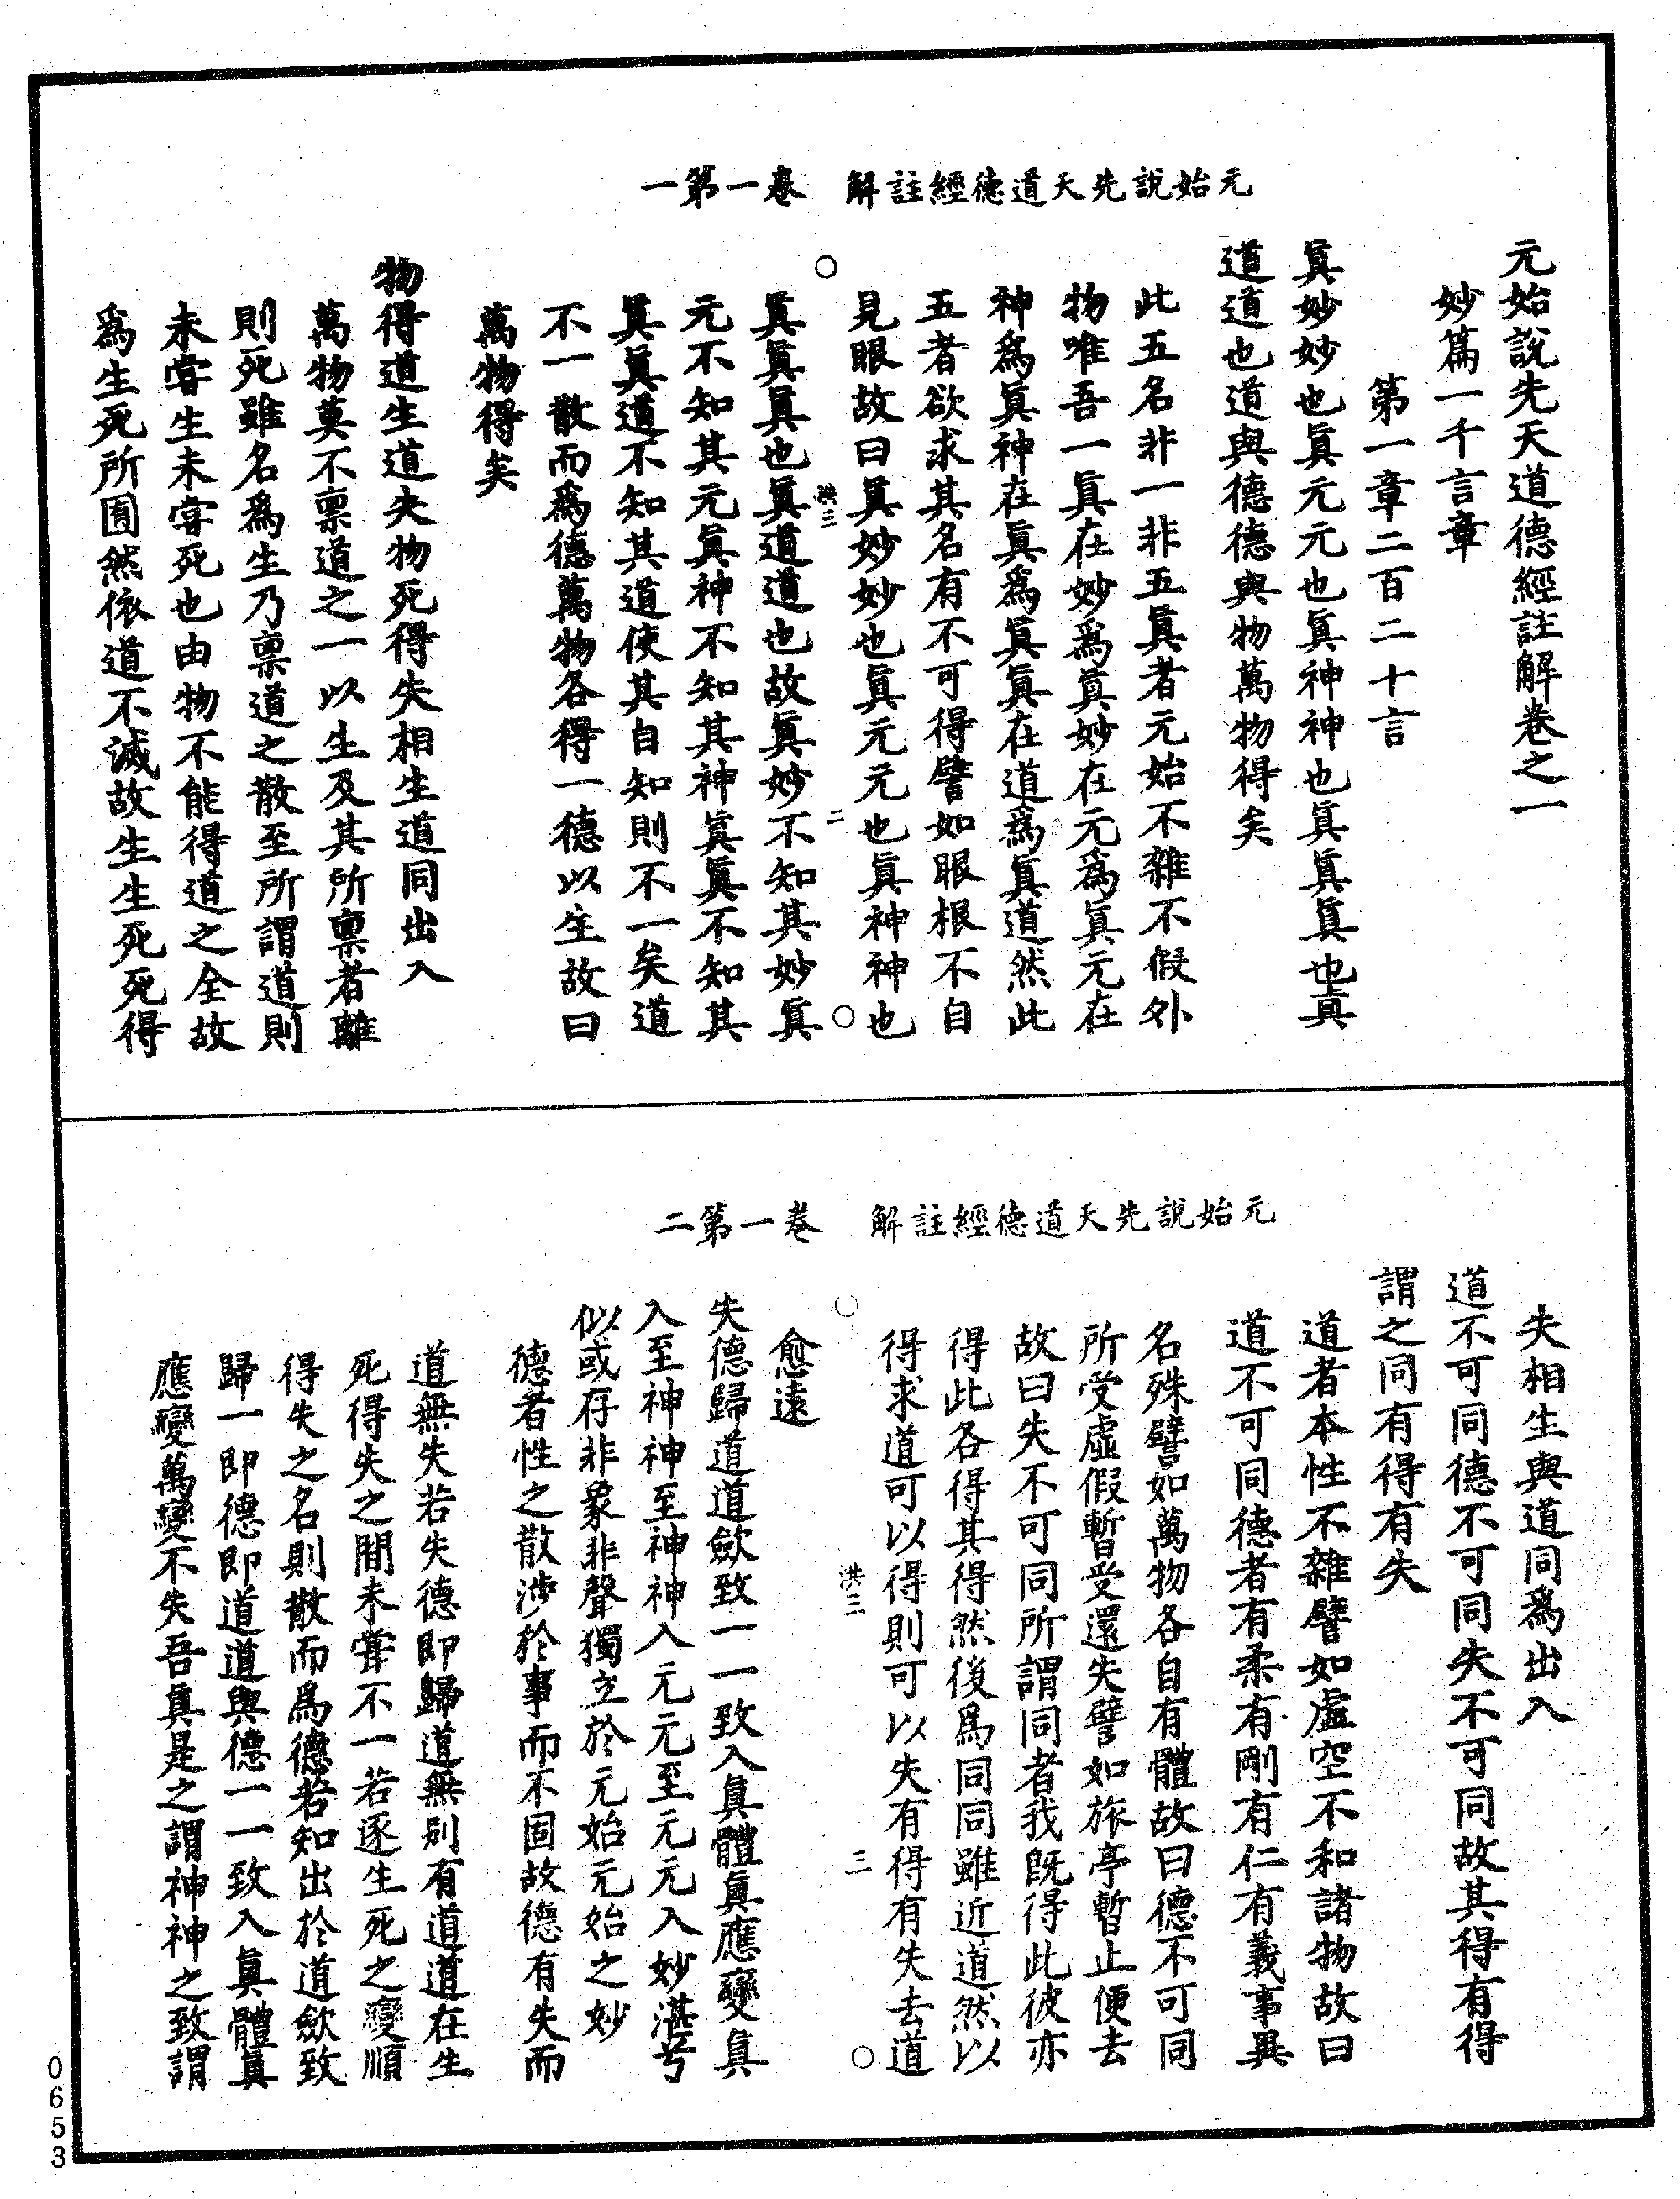 元始說先天道德經註解　卷一第一
元始說先天道德經註解卷之一
妙篇一千言章
第一章二百二十言
眞妙妙也眞元元也眞神神也眞眞眞也眞
道道也道與德德與物萬物得矣
此五名非一非五眞者元始不雜不假外
物唯吾一眞在妙爲眞妙在元爲眞元在
神爲眞神在眞爲眞眞在道爲眞道然此
五者欲求其名有不可得譬如眼根不自
見眼故曰眞妙妙也眞元元也眞神神也
洪三　二
眞眞眞也眞道道也故眞妙不知其妙眞
元不知其元眞神不知其神眞眞不知其
眞眞道不知其道使其自知則不一矣道
不一散而爲德萬物各得一德以生故曰
萬物得矣
物得道生道失物死得失相生道同出入
萬物莫不禀道之一以生及其所禀者離
則死雖名爲生乃禀道之散至所謂道則
未嘗生未嘗死也由物不能得道之全故
爲生死所囿然依道不滅故生生死死得
元始說先天道德經註解　卷一第二
失相生與道同爲出入
道不可同德不可同失不可同故其得有得
謂之同有得有失
道者本性不雜譬如虛空不和諸物故曰
道不可同德者有柔有剛有仁有義事異
名殊譬如萬物各自有體故曰德不可同
所受虛假暫受還失譬如旅亭暫止便去
故曰失不可同所謂同者我旣得此彼亦
得此各得其得然後爲同同雖近道然以
得求道可以得則可以失有得有失去道
洪三　三
愈遠
失德歸道道歛致一一致入眞體眞應變眞
入至神神至神神入元元至元元入妙湛兮
似或存非象非聲獨立於元始元始之妙
德者性之散涉於事而不固故德有失而
道無失若失德即歸道無別有道道在生
死得失之間未嘗不一若逐生死之變順
得失之名則散而爲德若知出於道歛致
歸一即德即道道與德一一致入眞體眞
應變萬變不失吾眞是之謂神神之致謂
0653